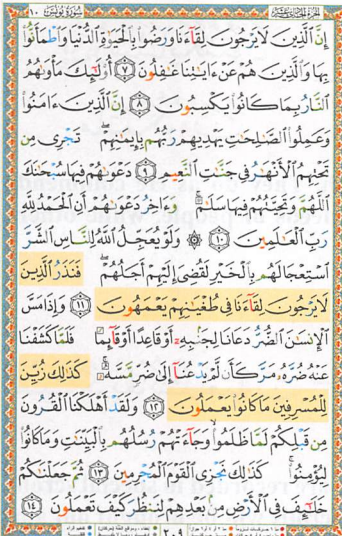 الجزء الحادي عشر ١٠ سورة يونس
إِنَّ ٱلَّذِينَ لَا يَرْجُونَ لِقَآءَنَا وَرَضُوا۟ بِٱلْحَيَوٰةِ ٱلدُّنْيَا وَٱطْمَأَنُّوا۟
بِهَا وَٱلَّذِينَ هُمْ عَنْ ءَايَـٰتِنَا غَـٰفِلُونَ ٧ أُو۟لَـٰٓئِكَ مَأْوَىٰهُمُ
ٱلنَّارُ بِمَا كَانُوا۟ يَكْسِبُونَ ٨ إِنَّ ٱلَّذِينَ ءَامَنُوا۟
وَعَمِلُوا۟ ٱلصَّـٰلِحَـٰتِ يَهْدِيهِمْ رَبُّهُم بِإِيمَـٰنِهِمْ ۖ تَجْرِى مِن
تَحْتِهِمُ ٱلْأَنْهَـٰرُ فِى جَنَّـٰتِ ٱلنَّعِيمِ ٩ دَعْوَىٰهُمْ فِيهَا سُبْحَـٰنَكَ
ٱللَّهُمَّ وَتَحِيَّتُهُمْ فِيهَا سَلَـٰمٌ ۚ وَءَاخِرُ دَعْوَىٰهُمْ أَنِ ٱلْحَمْدُ لِلَّهِ
رَبِّ ٱلْعَـٰلَمِينَ ١٠ ۞ وَلَوْ يُعَجِّلُ ٱللَّهُ لِلنَّاسِ ٱلشَّرَّ
ٱسْتِعْجَالَهُم بِٱلْخَيْرِ لَقُضِىَ إِلَيْهِمْ أَجَلُهُمْ ۖ فَنَذَرُ ٱلَّذِينَ
لَا يَرْجُونَ لِقَآءَنَا فِى طُغْيَـٰنِهِمْ يَعْمَهُونَ ١١ وَإِذَا مَسَّ
ٱلْإِنسَـٰنَ ٱلضُّرُّ دَعَانَا لِجَنۢبِهِۦٓ أَوْ قَاعِدًا أَوْ قَآئِمًا فَلَمَّا كَشَفْنَا
عَنْهُ ضُرَّهُۥ مَرَّ كَأَن لَّمْ يَدْعُنَآ إِلَىٰ ضُرٍّ مَّسَّهُۥ ۚ كَذَٰلِكَ زُيِّنَ
لِلْمُسْرِفِينَ مَا كَانُوا۟ يَعْمَلُونَ ١٢ وَلَقَدْ أَهْلَكْنَا ٱلْقُرُونَ
مِن قَبْلِكُمْ لَمَّا ظَلَمُوا۟ ۙ وَجَآءَتْهُمْ رُسُلُهُم بِٱلْبَيِّنَـٰتِ وَمَا كَانُوا۟
لِيُؤْمِنُوا۟ ۚ كَذَٰلِكَ نَجْزِى ٱلْقَوْمَ ٱلْمُجْرِمِينَ ١٣ ثُمَّ جَعَلْنَـٰكُمْ
خَلَـٰٓئِفَ فِى ٱلْأَرْضِ مِنۢ بَعْدِهِمْ لِنَنظُرَ كَيْفَ تَعْمَلُونَ ١٤
٢٠٩